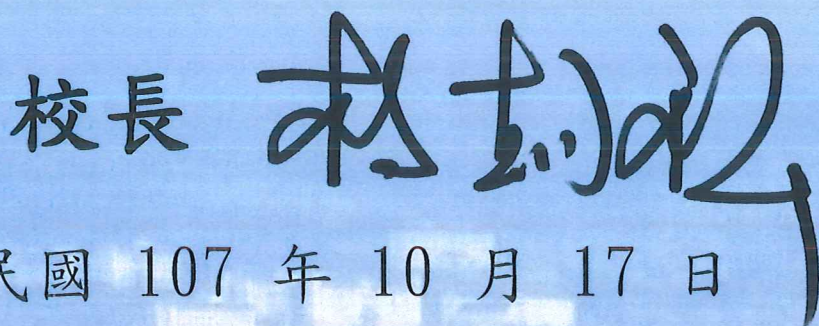 校長
民國 107 年 10 月 17 日